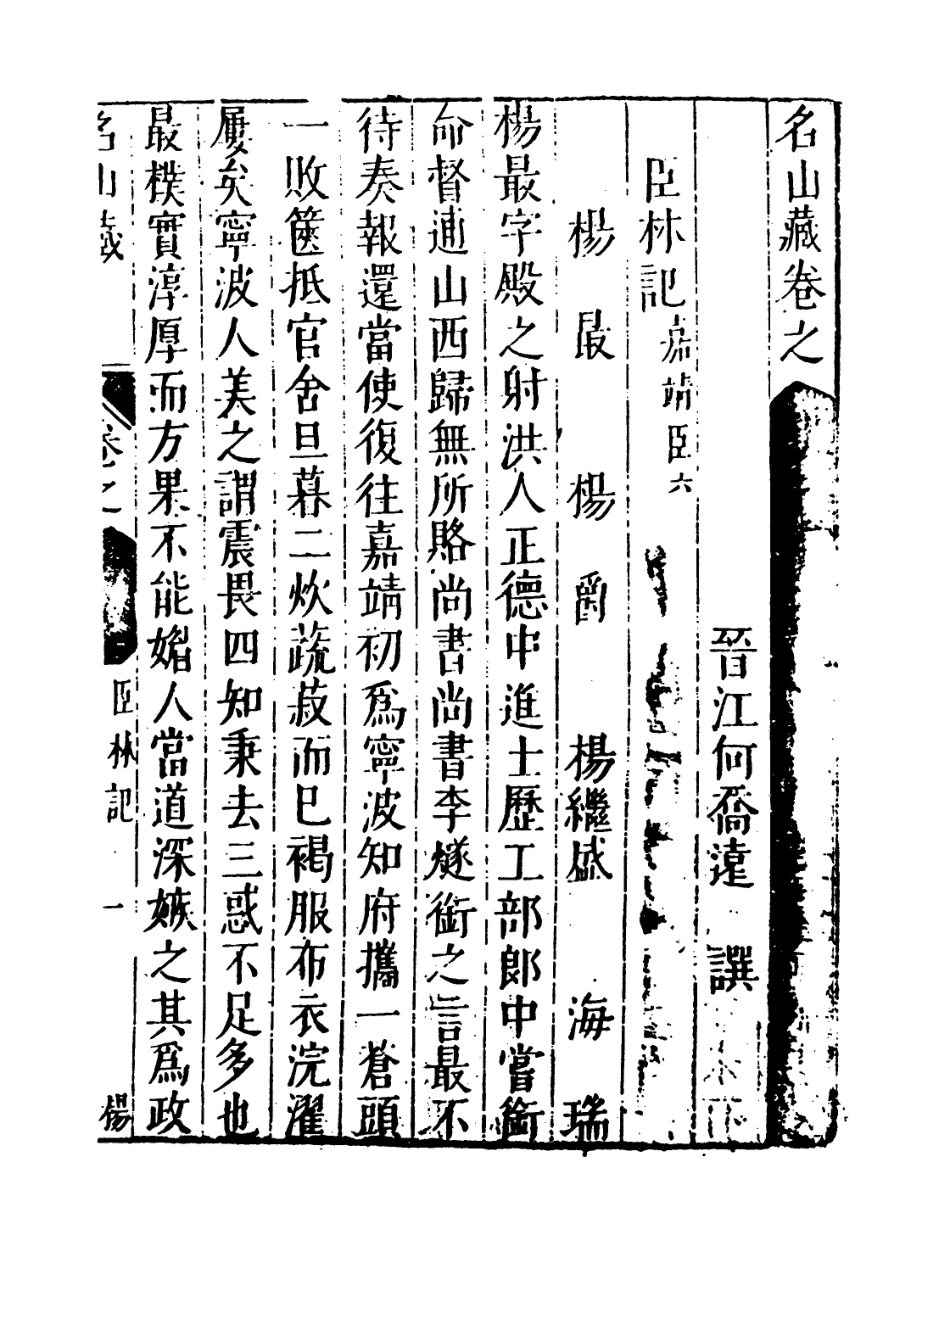 名山藏卷之
晉江何喬遠 譔
臣林記 嘉靖臣六
楊最 楊爵 楊繼盛 海瑞
楊最字殿之射洪人正德中進士歷工部郎中嘗銜
命督逋山西歸無所賂尚書尚書李燧銜之言最不
待奏報還當使復往嘉靖初爲寧波知府攜一蒼頭
一敗篋抵官舍旦暮二炊蔬菽而已褐服布衣浣濯
屢矣寧波人美之謂震畏四知秉去三惑不足多也
最樸實淳厚而方果不能媚人當道深嫉之其爲政
名山藏 卷之 臣林記 一 楊